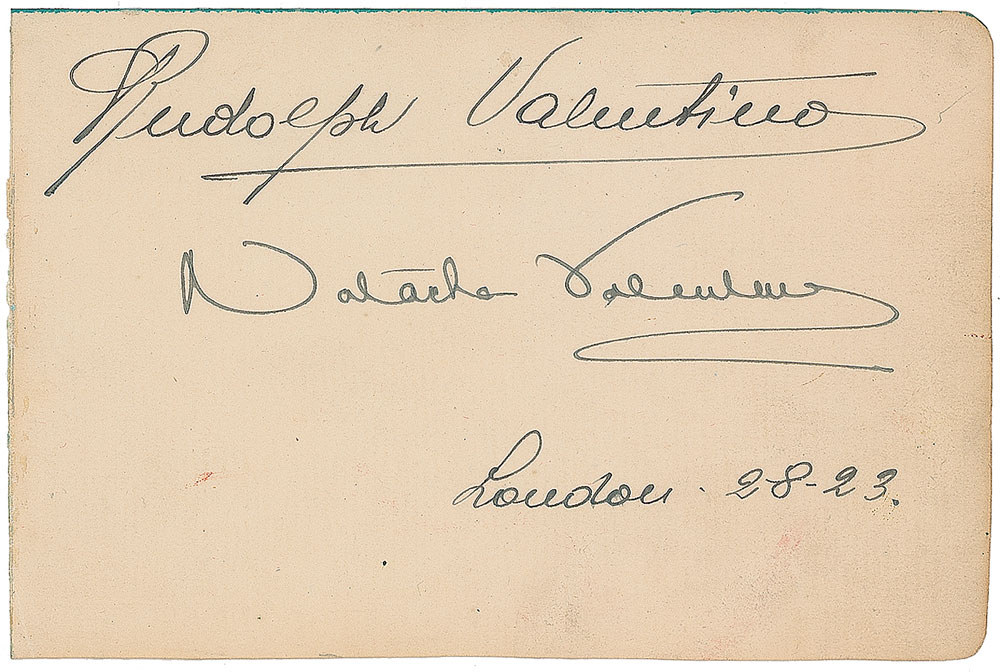 Rudolph Valentino
Natacha Valentino
London - 2-8-23.